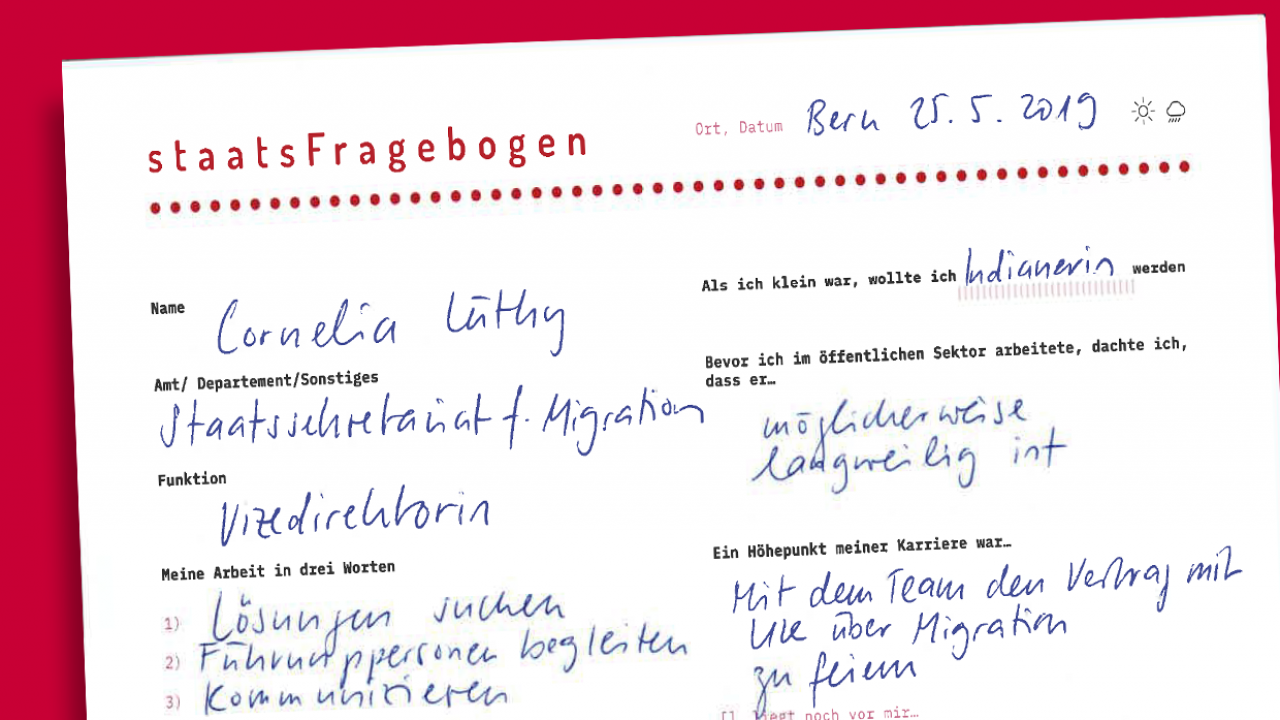 staatsFragebogen
Ort, Datum Bern 25.5.2019
Name
Cornelia Lüthy
Amt/ Departement/Sonstiges
Staatssekretariat f. Migration
Funktion
Vizedirektorin
Meine Arbeit in drei Worten
1) Lösungen suchen
2) Führungspersonen begleiten
3) Kommunizieren
Als ich klein war, wollte ich Indianerin werden
Bevor ich im öffentlichen Sektor arbeitete, dachte ich,
dass er…
möglicherweise
langweilig ist
Ein Höhepunkt meiner Karriere war…
Mit dem Team den Vertrag mit
UK über Migration
zu feiern
[] liegt noch vor mir…